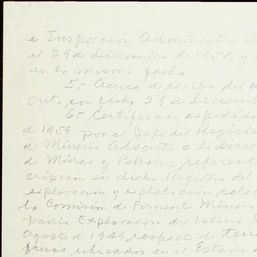 e Inspección Administrativ
el 29 de Diciembre de 1958, y
en la misma fecha.
5.- Acuse de recibo del o
con fecha 29 de Diciemb
6.- Certificado expedido
de 1959 por el Jefe del Registro
de Minería Adscrito a la Direc
de Minas y Petróleo, referent
cripción en dicho Registro del
exploración y explotación, celeb
la Comisión de Fomento Minero
pañía Exploradora de Istmo S
Agosto de 1949, respecto de terre
ubicados en el Estado